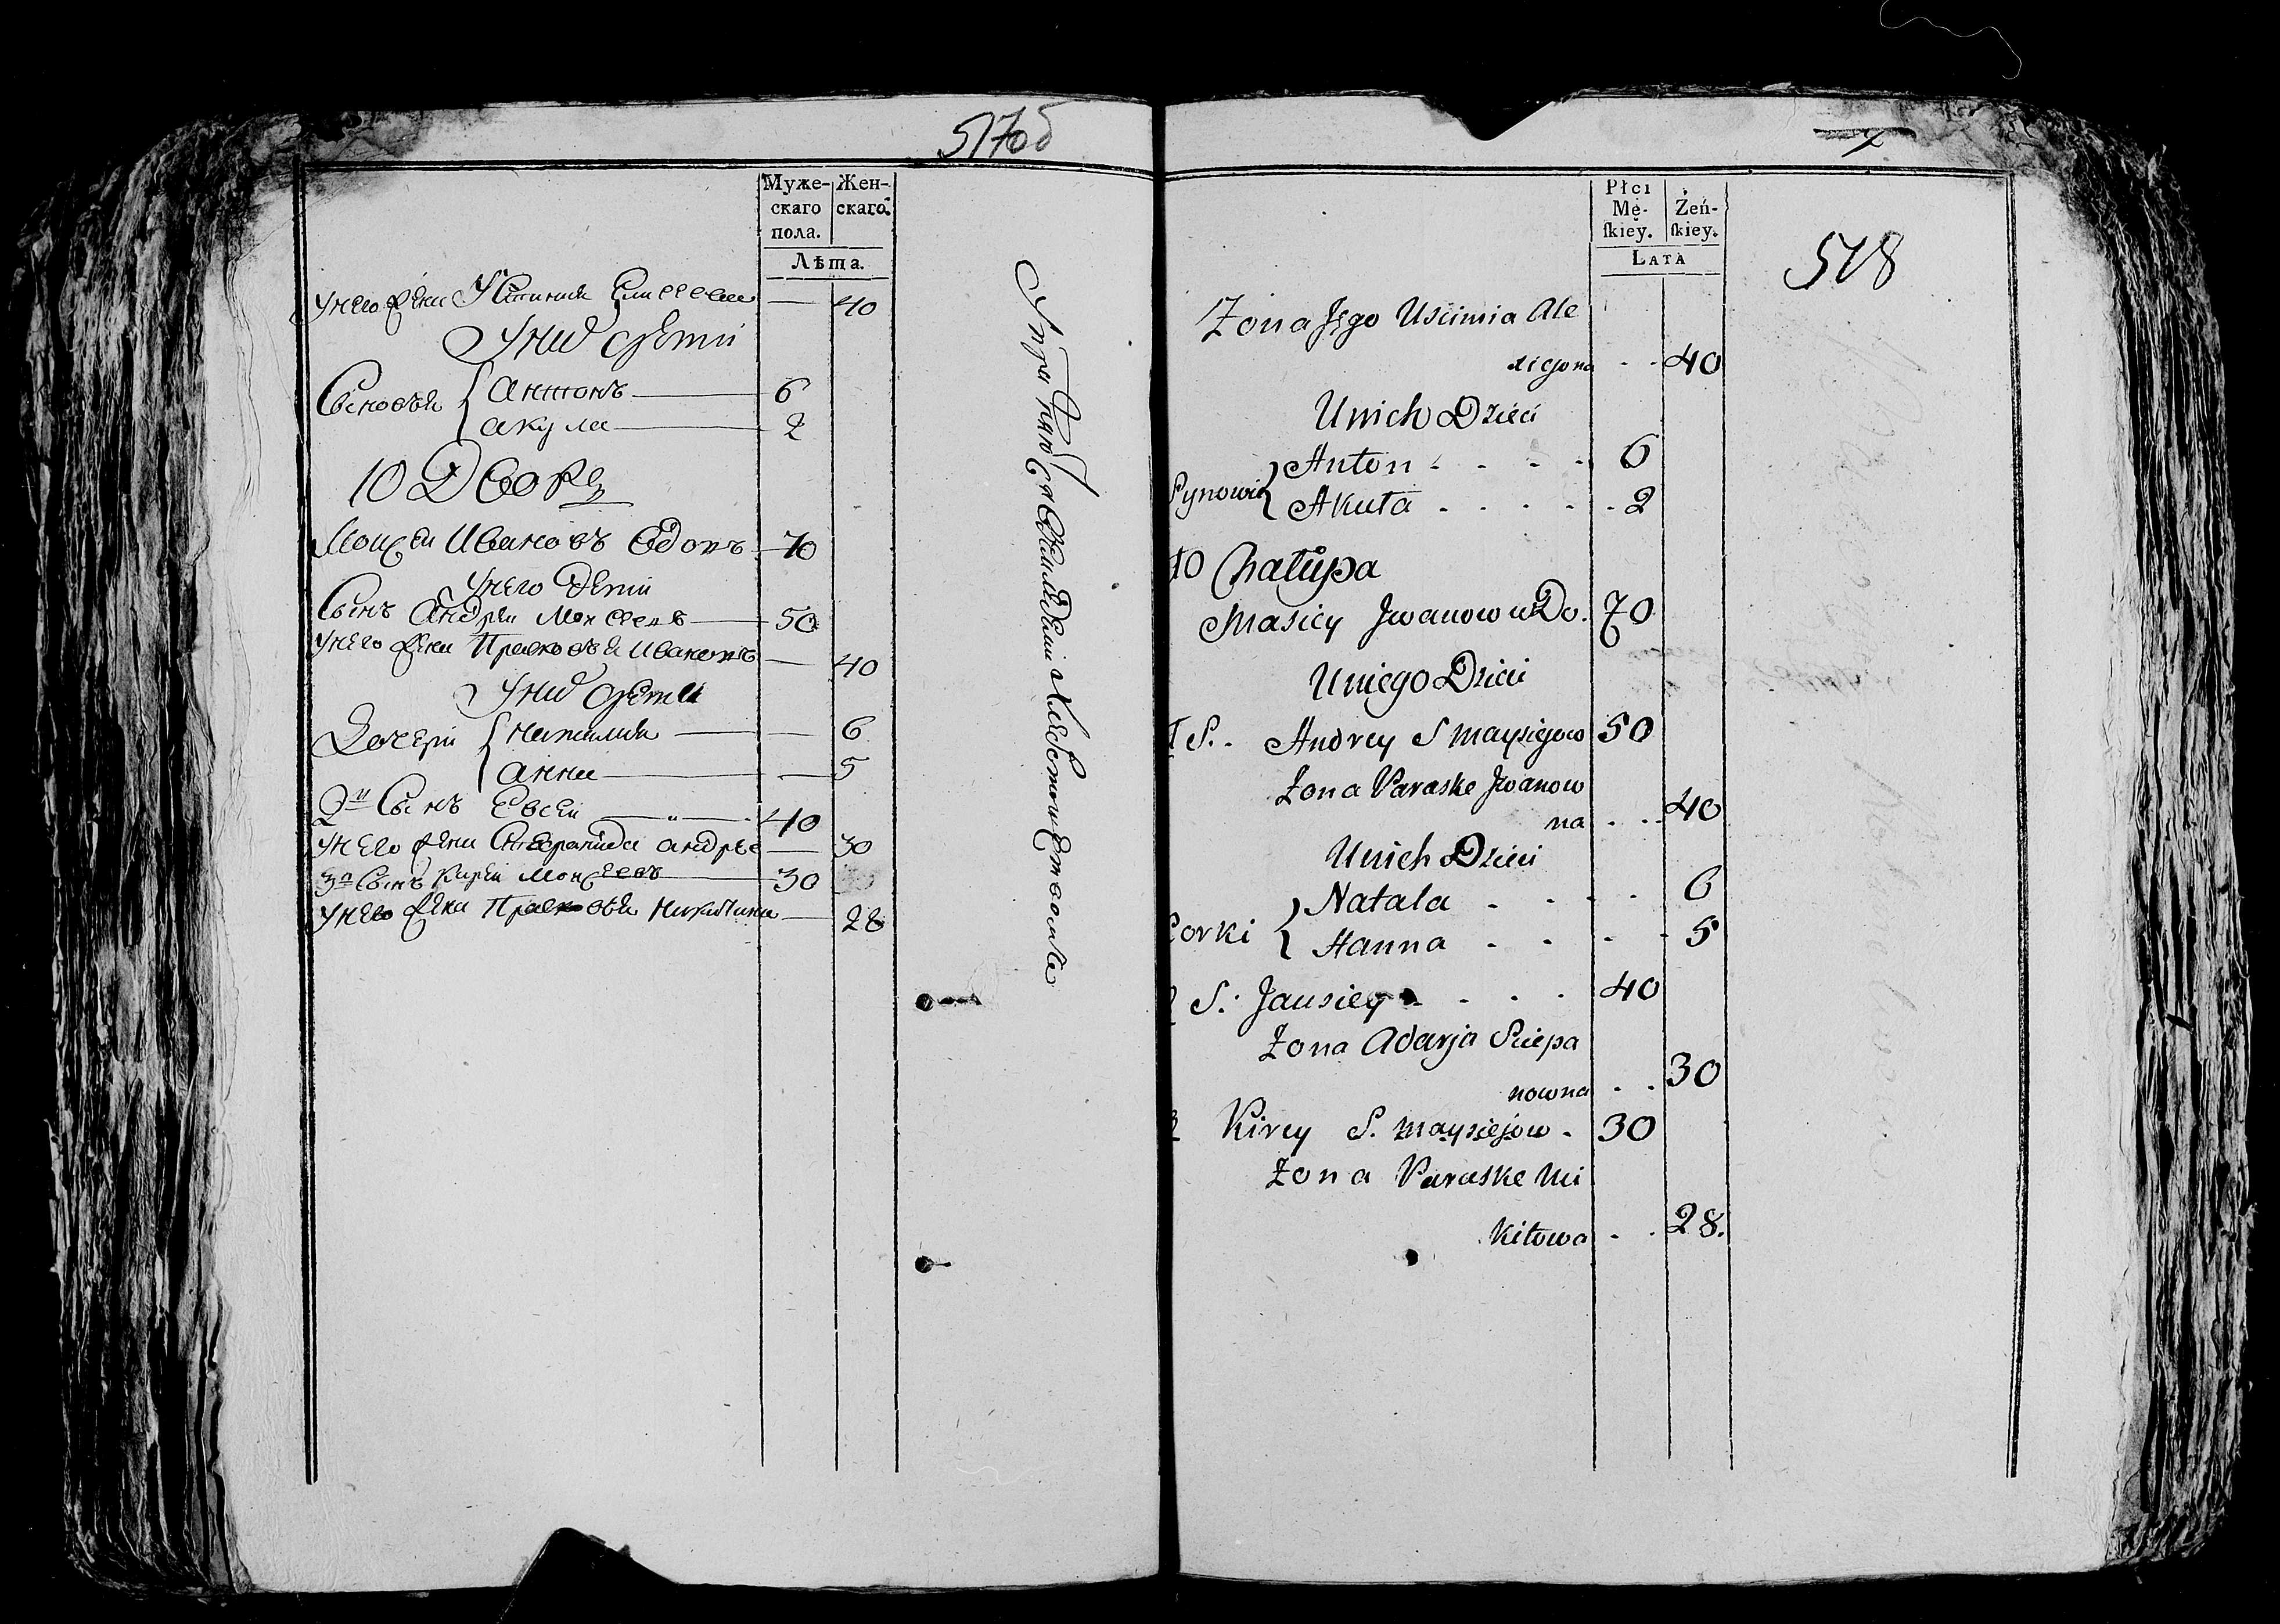 517об
Муже- Жен-
скаго скаго.
пола.
Лѣта.
унего жена Устиния — 40
Уних дети
Сыновья { антонъ — 6
акула — 2
10 Дворъ
Моисей Ивановъ вдовъ 70
Унего дети
Сынъ Андрей Моисеевъ — 50
унего жена Прасковья Иванов — 40
Уних дети
Дочери { Наталия — 6
анна — 5
2й Сынъ Евсей — „ — 40
унего жена андрее — 30
3й Сынъ Кирей Моисеевъ — 30
унего жена Прасковья Никитина — 28
Płci
Mę- Żeń-
ſkiey. ſkiey.
LATA
518
Żona Jego Uscimia Ale
xiejona . . 40
Unich Dzieci
Synowie { Anton . . . . 6
Akuła . . . . . 2
10 Chałupa
Masiey Jwanow wDo. 70
Uniego Dzieci
1 S. Andrey S Maysiejow 50
Żona Paraske Jwanow
na . . . 40
Unich Dzieci
Corki { Natala . . . . 6
Hanna . . . . 5
2 S. Jausiey . . . 40
Żona Adarja Sciepa
nowna . . 30
3 Kirey S. Maysiejow . 30
Żona Paraske Mi
kitowa . . 28.